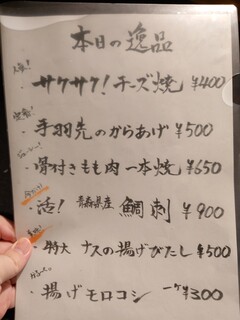 本日の逸品
人気!
・サクサク!チーズ焼 ¥400
・手羽先のからあげ ¥500
ジューシー!
・骨付きもも肉一本焼 ¥650
・活! 青森県産 鯛刺 ¥900
・特大 ナスの揚げびたし ¥500
・揚げモロコシ 一ケ ¥300